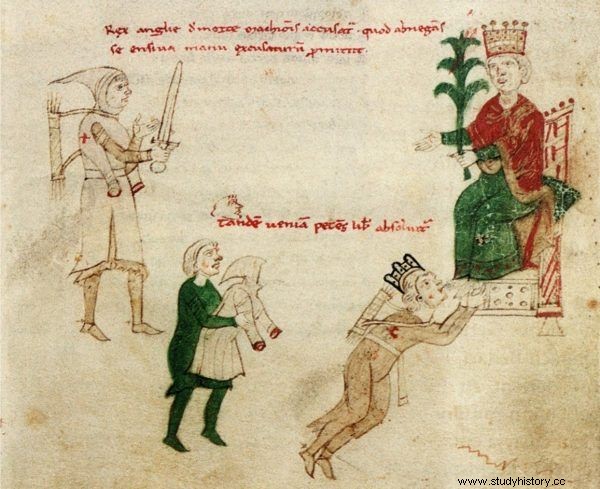 Rex anglie d morte marchiõis accusat · quod abnegãs
se ensiva manu excusaturũ pmittit.
tandẽ veniã petẽs lib absoluit
www.studyhistory.cc